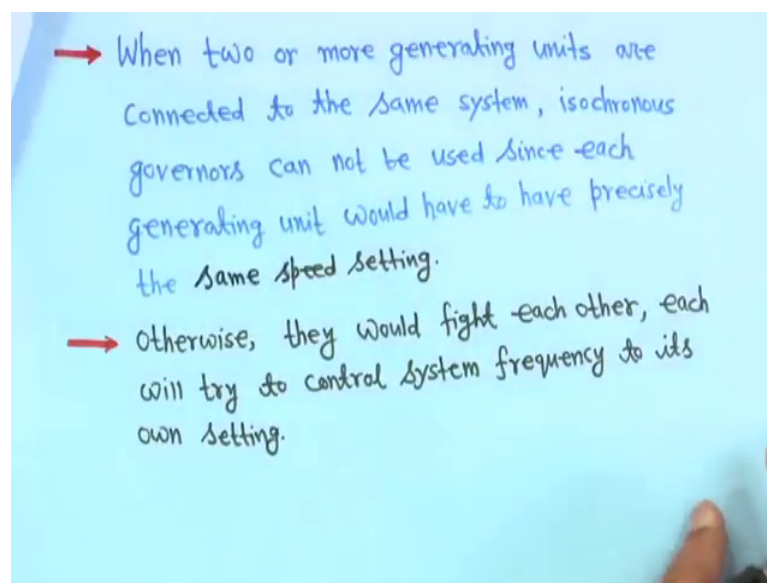 → When two or more generating units are
connected to the same system, isochronous
governors can not be used since each
generating unit would have to have precisely
the same speed setting.
→ Otherwise, they would fight each other, each
will try to control system frequency to its
own setting.